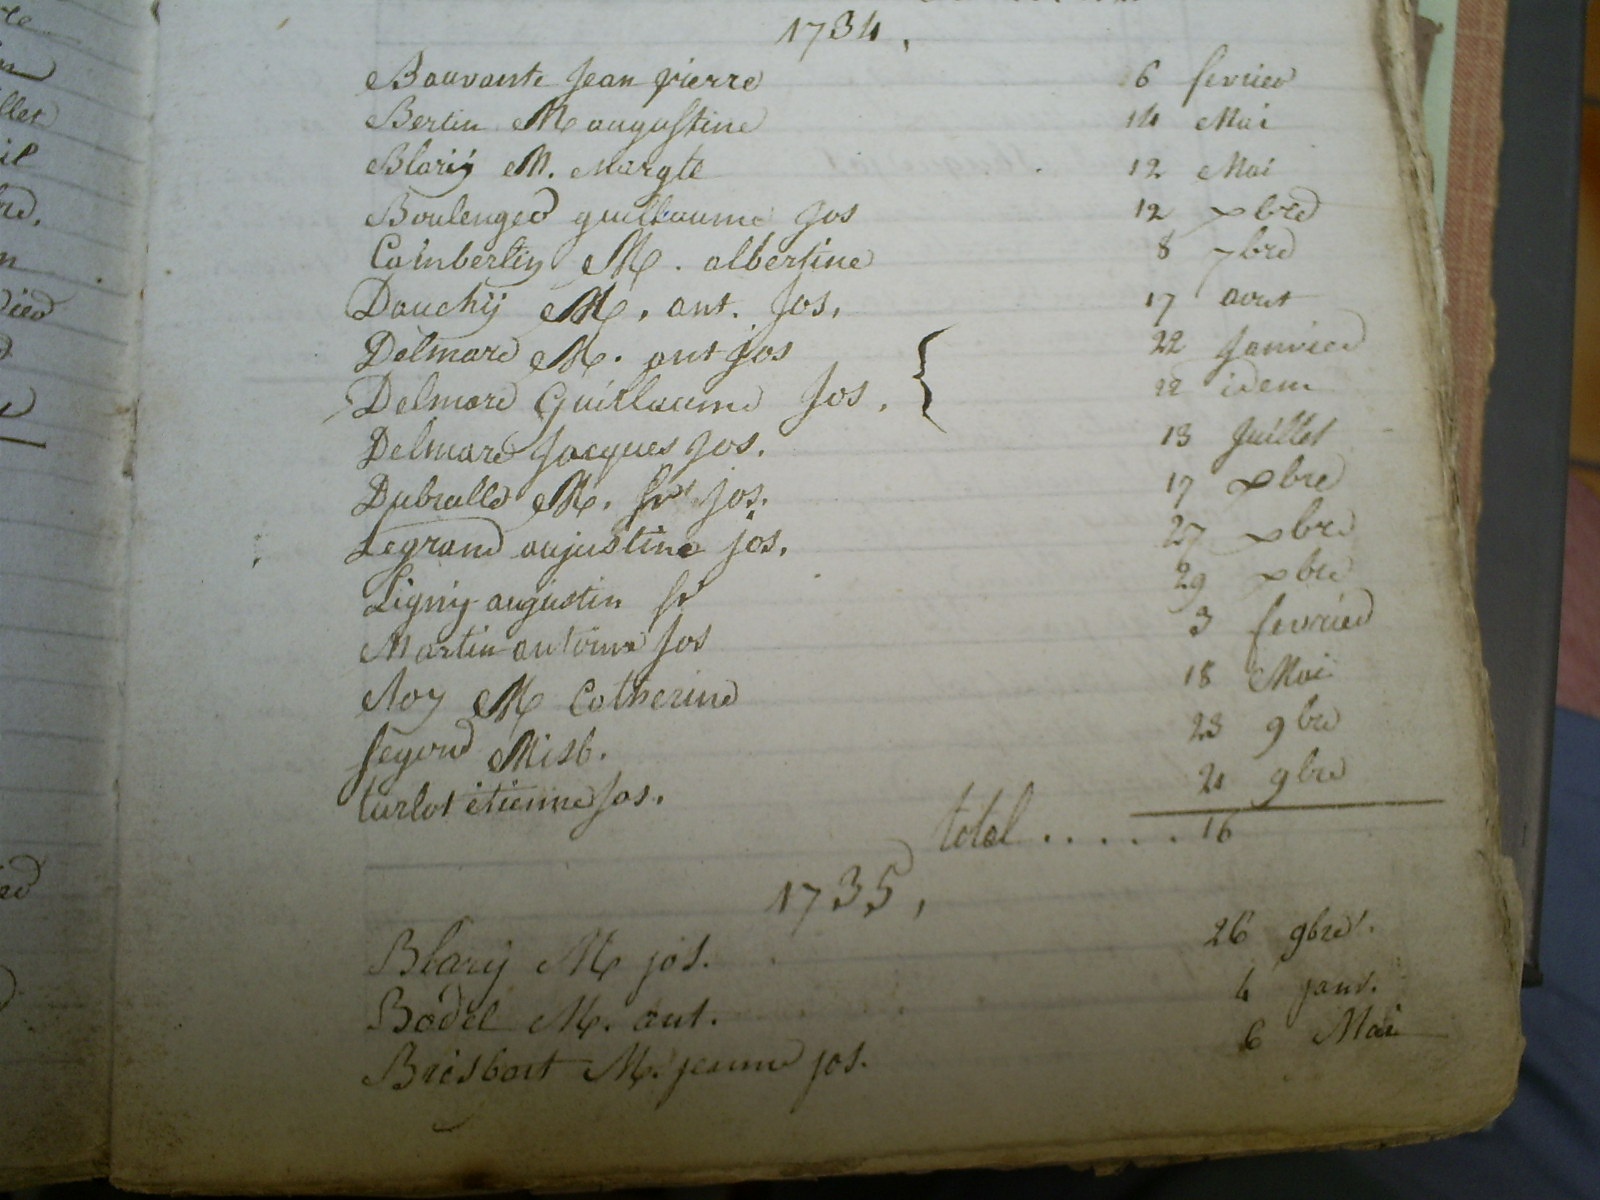 1734,
Bauvante Jean pierre 6 fevrier
Bertin M augustine 14 Mai
Blarij M. Margte 12 Mai
Boulenger guillaume Jos 12 xbre
Camberlin M. albertine 8 7bre
Dauchij M. ant. Jos. 17 aout
Delmare M. ant jos 22 Janvier
Delmare Guillaume Jos. 22 idem
Delmare Jacques Jos. 13 Juillet
Dubrulle M. fr jos. 17 xbre
Legrand aujustine jos. 27 xbre
Ligny augustin fr 29 xbre
Martin antoine Jos 3 fevrier
Noy M Catherine 18 Mai
Segond M isb. 23 9bre
turlot etienne Jos. 21 9bre
total ...... 16
1735,
Blarij M jos. 26 9bre.
Badel M. ant. 4 janv.
Brisbart M. jeanne jos. 6 Mai